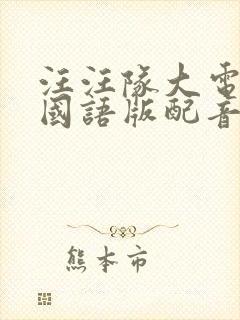 汪汪隊大電
國語版配音
熊本市